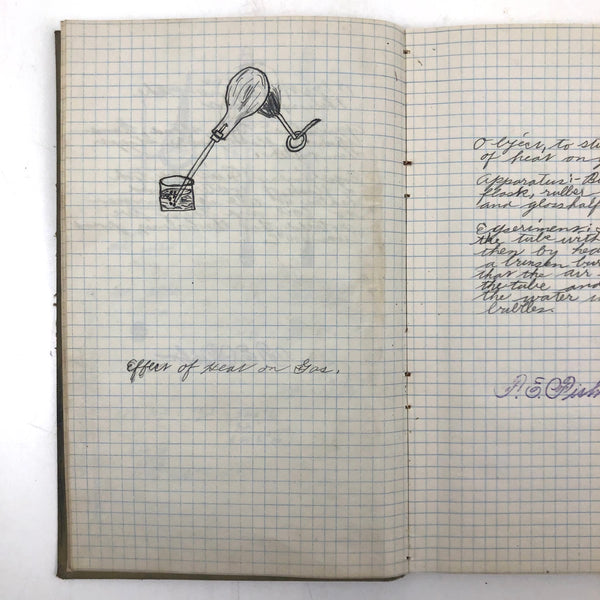 Effect of Heat on Gas.
Object, to stu
of heat on g
Apparatus:- Bu
flask, ruller
and glasshalf
Experiment:-
the tube with
then by hea
a bunsen bur
that the air
the tube and
the water i
bubbles.
P. E. Fish